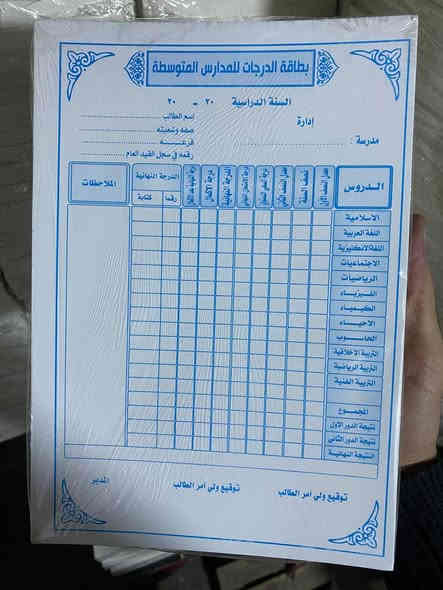 بطاقة الدرجات للمدارس المتوسطة
السنة الدراسية ٢٠ - ٢٠
إدارة
مدرسة :
إسم الطالب
صفه وشعبته
فرعـــه
رقمه في سجل القيد العام
الـدروس
معدل النصف الأول
نصف السنة
معدل النصف الثاني
الدرجة النهائية
درجة الاكمال
الدرجة النهائية
رقما
كتابة
الملاحظات
الاسلامية
اللغة العربية
اللغة الانكليزية
الاجتماعيات
الرياضيات
الفـيـزيـاء
الكـيـمـيـاء
الاحـيـاء
الحـاسـوب
التربية الاخلاقية
التربية الرياضية
التربية الفنية
المجمـوع
نتيجة الدور الاول
نتيجة الدور الثاني
النتيجة النهائيـة
توقيع ولي أمر الطالب
توقيع ولي أمر الطالب
المدير